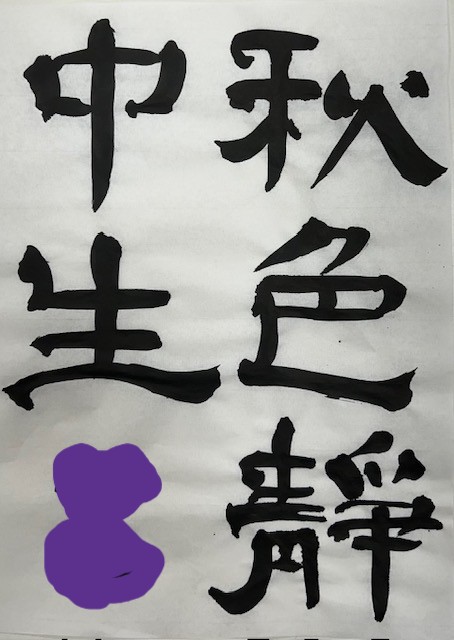 秋色靜
中生